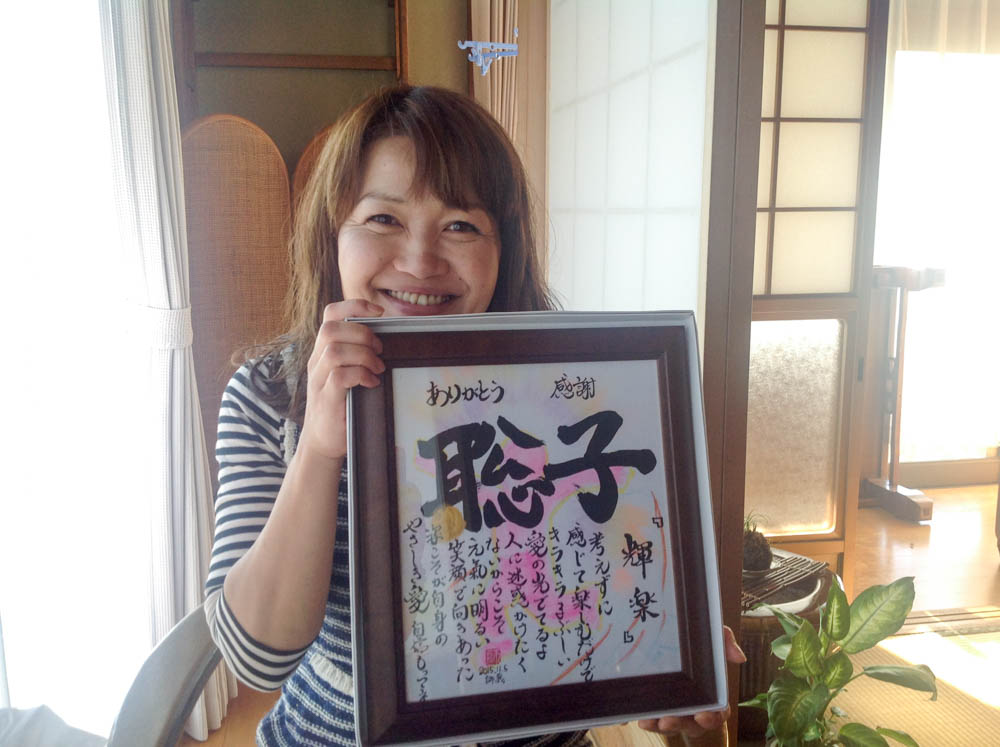 ありがとう
感謝
聡子
『輝楽』
考えずに
感じて楽しむだけで
キラキラまぶしい
愛の光でてるよ
人に迷惑かけたく
ないからこそ
元氣に明るい
笑顔で向きあった
こそが自身の
やさしき愛
2015.11.5